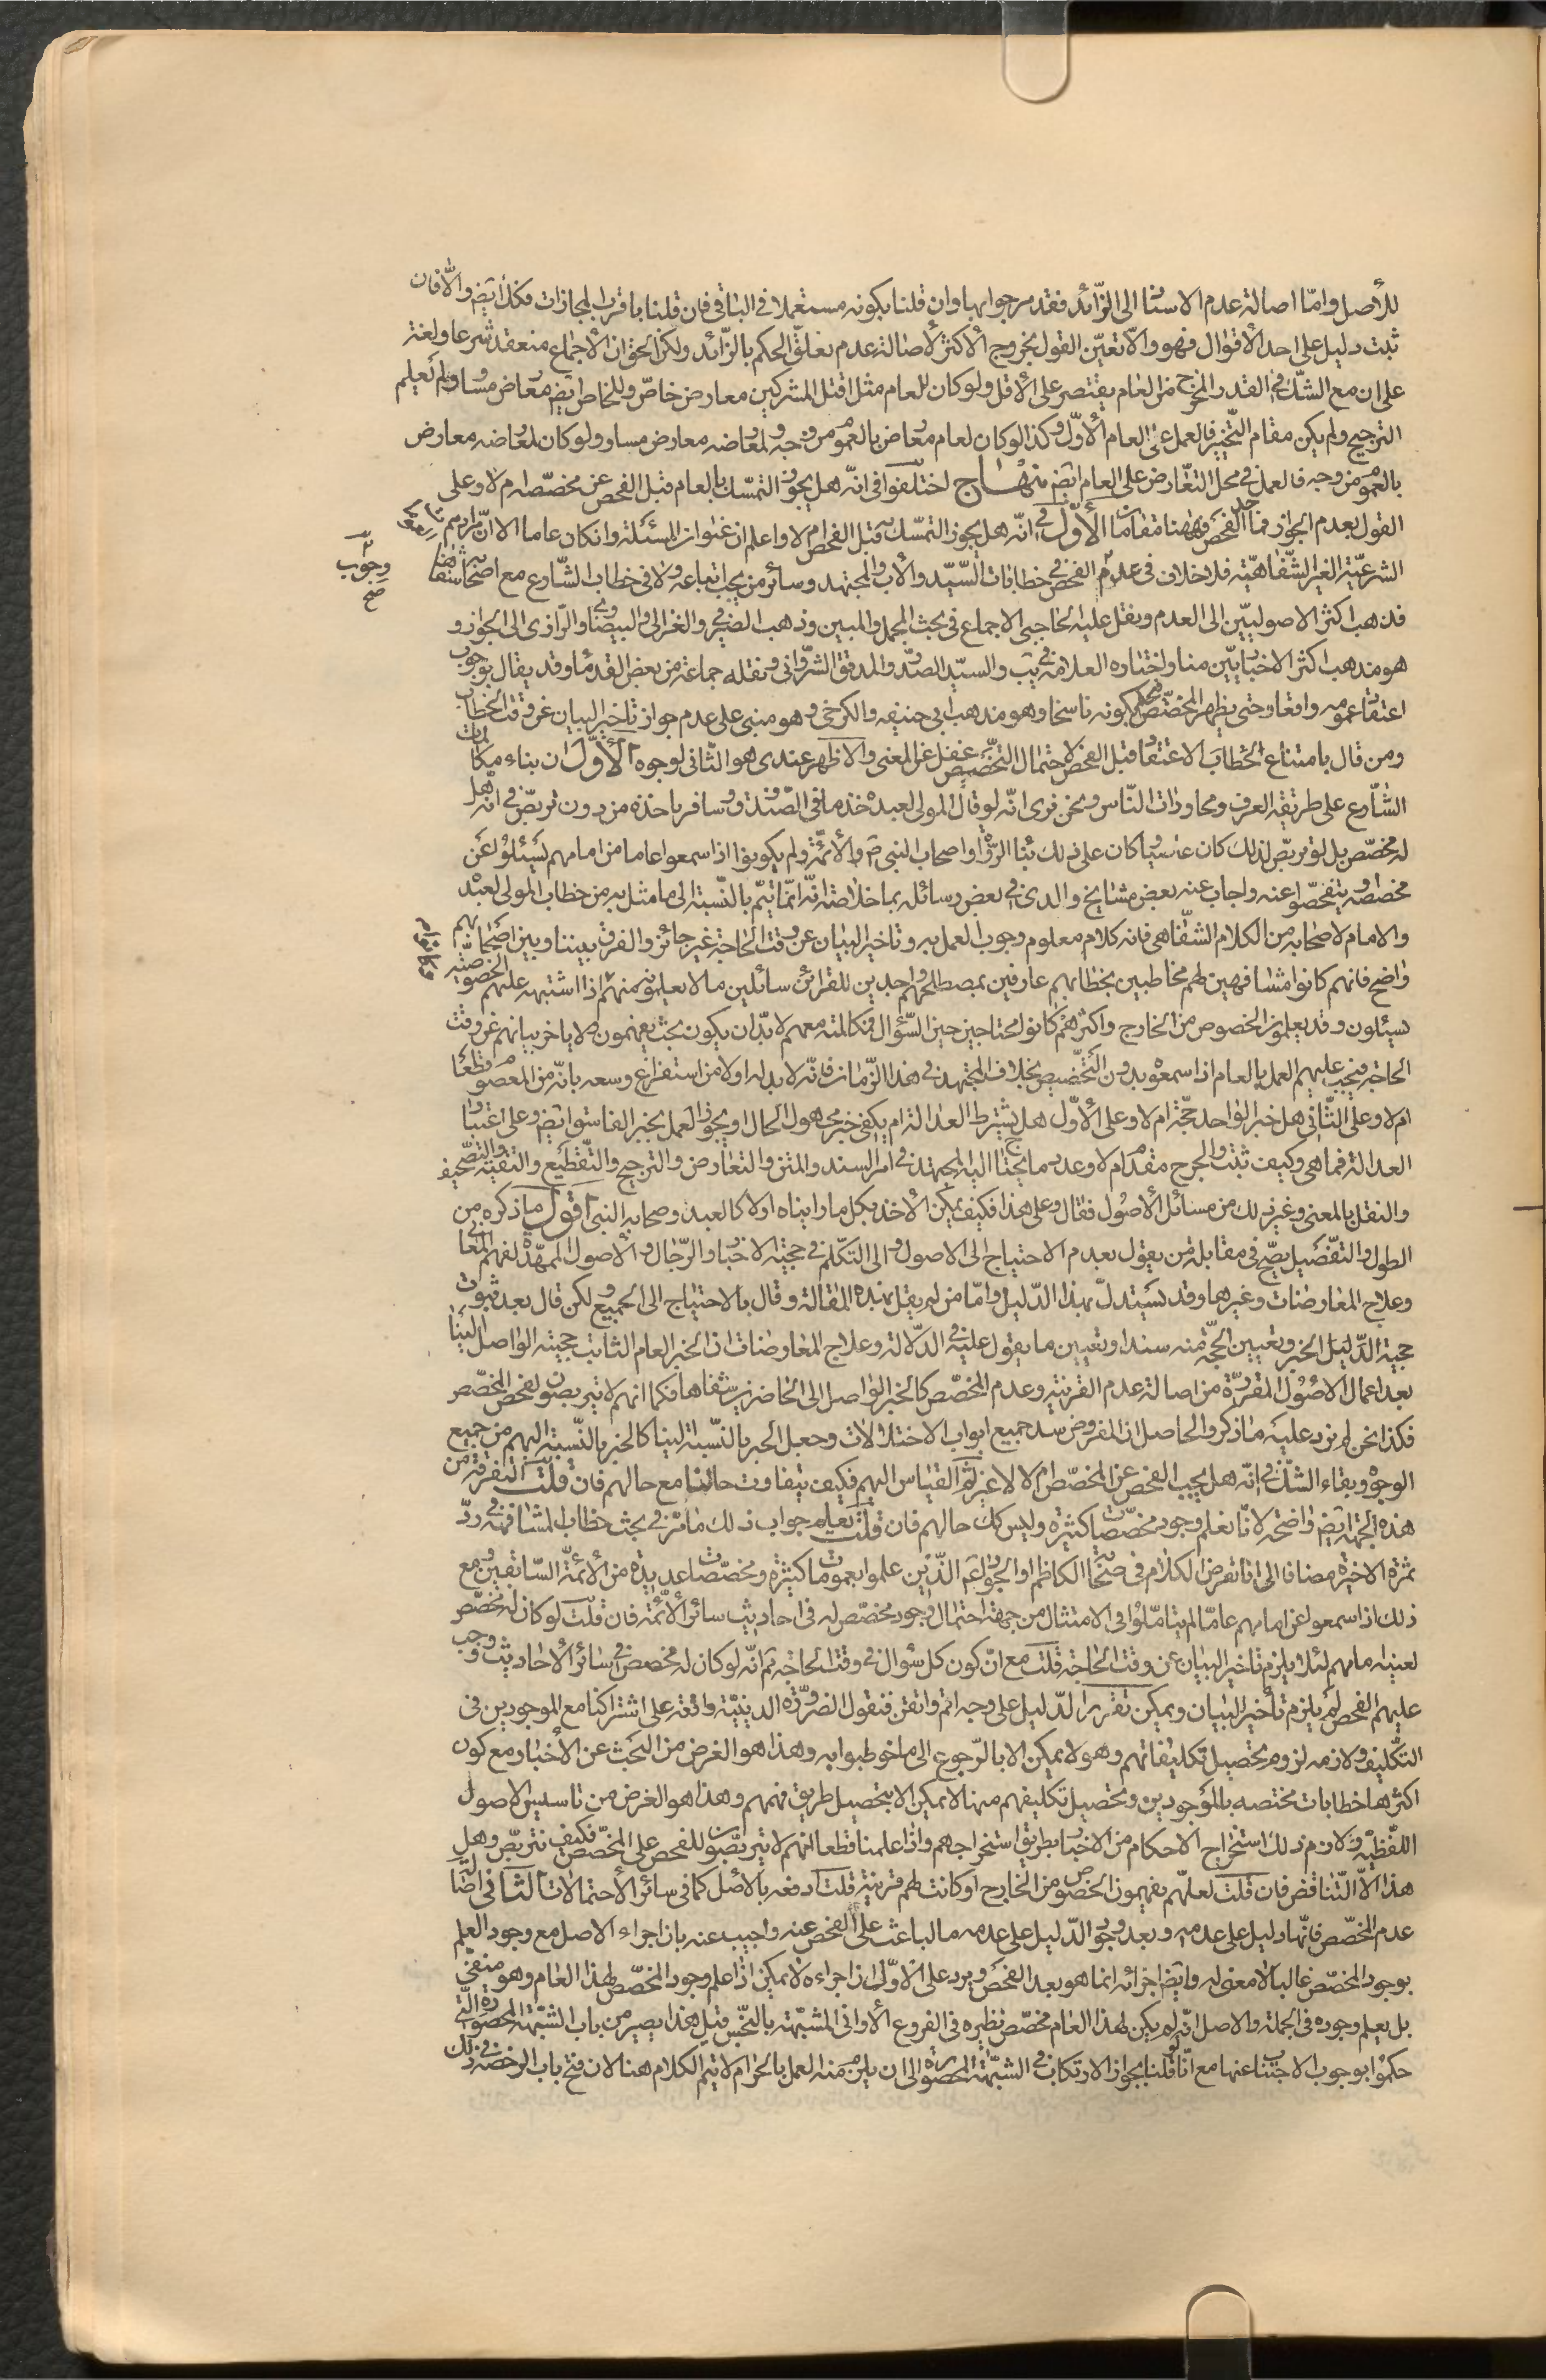 للأصل وامّا اصالة عدم الاستناد الى الزّائد فقد مر جوابها وان قلنا بكونه مستعملا في الباقي فان قلنا باقرب المجازات فكذا ايضا والّا فان
ثبت دليل على احد الأقوال فهو والّا تعيّن القول بخروج الأكثر لأصالة عدم تعلّق الحكم بالزّائد ولكن الحق ان الأجماع منعقد شرعا ولغة
على ان مع الشّك في القدر المخرج من العام يقتصر على الأقل ولو كان للعام مثل اقتل المشركين معارض خاصّ وللخاص ايضا معارض مساو ولم نعلم
الترجيح ولم يكن مقام التّخيير فالعمل على العام الأوّل وكذا لو كان لعام معارض بالعموم من وجه ولمعارضه معارض مساو ولو كان لمعارضه معارض
بالعموم من وجه فالعمل في محل التعارض على العام ايضا منهاج اختلفوا في انّه هل يجوز التمسّك بالعام قبل الفحص عن مخصّصه ام لا وعلى
القول بعدم الجواز فما حدّ الفحص فههنا مقامات الأوّل في انّه هل يجوز التمسّك به قبل الفحص ام لا واعلم ان عنوان المسئلة وان كان عاما الا انّ مرادهم
الشرعيّة الغير الشّفاهيّة فلا خلاف في عدم وجوب الفحص في خطابات السّيّد والأب والمجتهد وسائر من يجب اتباعه ولا في خطاب الشّارع مع اصحابه شفاها
فذهب اكثر الاصوليّين الى العدم ونقل عليه الحاجبى الاجماع في بحث المجمل والمبين وذهب الصيرفى والغزالى والبيضاوى والرّازى الى الجواز و
هو مذهب اكثر الاخباريّين منا واختاره العلامة في يب والسيّد الصدر والمدقق الشّروانى ونقله جماعة من بعض القدماء وقد يقال بوجوب
اعتقاد عمومه واقعا وحتى يظهر المخصّص فيحكم بكونه ناسخا وهو مذهب ابى حنيفه والكرخى وهو مبنى على عدم جواز تاخير البيان عن وقت الخطاب
ومن قال بامتناع الخطاب الاعتقاد قبل الفحص لاحتمال التخصيص غفل عن المعنى والاظهر عندى هو الثّانى لوجوه الأوّل ان بناء مكالمات
الشّارع على طريقة العرف ومحاورات النّاس ونحن نرى انّه لو قال المولى لعبده خذ ما في الصّندوق وسافر باخذه من دون تربّص في انّه هل
له مخصّص بل لو تربّص لذلك كان عاصيا وكان على ذلك بناء الرّواة واصحاب النبى ص والأئمّة ولم يكونوا اذا سمعوا عاما من امامهم يسئلوا عن
مخصصه او يتفحّصوا عنه واجاب عنه بعض مشايخ والدى في بعض رسائله بما خلاصته انّه انّما تتمّ بالنّسبة الى ما مثل به من خطاب المولى لعبده
والامام لاصحابه من الكلام الشّفاهى فانه كلام معلوم وجوب العمل به وتاخير البيان عن وقت الحاجة غير جائز والفرق بيننا وبين اصحابهم
واضح فانهم كانوا مشافهين لهم مخاطبين بخطابهم عارفين بمصطلحهم واجدين للقرائن سائلين ما لا يعلمونه منهم اذا اشتبه عليهم الخصوصيّة
يسئلون وقد يعلمون الخصوص من الخارج واكثرهم كانوا محتاجين حين السّؤال فمكالمته معهم لا بدّ ان يكون بحيث يفهمون ولا ياخر بيانهم عن وقت
الحاجة فيجب عليهم العمل بالعام اذا سمعوه بدون التخصيص بخلاف المجتهد في هذا الزّمان فانّه لا بد له اولا من استفراغ وسعه بانّه من المعصوم قطعا
ام لا وعلى الثّانى هل خبر الواحد حجّة ام لا وعلى الأوّل هل يشترط العدالة ام يكفى خبر مجهول الحال او يجوز العمل بخبر الفاسق ايضا وعلى اعتبار
العدالة فما هى وكيف تثبت والجرح مقدم ام لا وعد ما يحتاج اليه المجتهد في امر السند والمتن والتعارض والترجيح والتقطيع والتقيّة والتصحيف
والنقل بالمعنى وغير ذلك من مسائل الأصول فقال وعلى هذا فكيف يمكن الأخذ بكل ما رايناه اولا كالعبد وصحابه النبى اقول ما ذكره من
الطول والتفصيل يصحّ في مقابلة من يقول بعدم الاحتياج الى الاصول و الى التكلّم في حجية الاخبار والرّجال والأصول الممهّدة لفهم المعانى
وعلاج المعارضات وغيرها وقد يستدلّ بهذا الدّليل وامّا من لم يقل بهذه المقالة وقال بالاحتياج الى الجميع ولكن قال بعد ثبوت
حجية الدّليل الخبر وتعيين الحجّة منه سندا وتعيين ما يقول عليه في الدّلالة وعلاج المعارضات ان الخبر العام الثابت حجيته الواصل الينا
بعد اعمال الاصول المقررة من اصالة عدم القرينة وعدم المخصّص كالخبر الواصل الى الحاضرين شفاها فكما انهم لا يتربصون لفحص المخصّص
فكذا نحن لم نرد عليه ما ذكر والحاصل ان المفروض سد جميع ابواب الاختلالات وجعل الخبر بالنّسبة الينا كالخبر بالنّسبة اليهم من جميع
الوجوه وبقاء الشّك في انّه هل يجب الفحص عن المخصّص ام لا لا غير ثمّ القياس اليهم فكيف يتفاوت حالنا مع حالهم فان قلت التفرقة من
هذه الجهة ايضا واضحة لانّا نعلم وجود مخصّصات كثيرة وليس كك حالهم فان قلت يعلم جواب ذلك ما مرّ في بحث خطاب المشافهة في ردّ
ثمرة الاخيرة مضافا الى انّا نفرض الكلام في صحابة الكاظم او الجواد عم الّذين علموا بعمومات كثيرة ومخصّصات عديدة من الأئمّة السّابقين ومع
ذلك اذا سمعوا عن امامهم عامّا لم يتامّلوا في الامتثال من جهة احتمال وجود مخصّص له في احاديث سائر الأئمّة فان قلت لو كان له مخصّص
لعينه امامهم لئلا يلزم تاخير البيان عن وقت الحاجة قلت مع انّ كون كل سؤال في وقت الحاجة ثم انّه لو كان له مخصص في سائر الأحاديث ووجب
عليهم الفحص لم يلزم تأخير البيان ويمكن تقرير الدّليل على وجه اتم واتقن فنقول الضرورة الدينيّة واقعة على اشتراكنا مع الموجودين في
التكليف ولازمه لزوم تحصيل تكليفاتهم وهو لا يمكن الا بالرّجوع الى ما خوطبوا به وهذا هو الغرض من البحث عن الأخبار مع كون
اكثرها خطابات مختصه بالموجودين وتحصيل تكليفهم منها لا يمكن الا بتحصيل طريق فهمهم وهذا هو الغرض من تاسيس الاصول
اللّفظيّة ولازم ذلك استخراج الاحكام من الاخبار بطريق استخراجهم واذا علمنا قطعا انهم لا يتربّصون للفحص على المخصّص فكيف نتربّص وهل
هذا الّا التّناقض فان قلت لعلّهم يفهمون الخصوص من الخارج او كانت لهم قرينة قلت دفعه بالأصل كما في سائر الأحتمالات الثّانى اصالة
عدم المخصّص فانّها دليل على عدمه وبعد وجود الدّليل على عدمه ما الباعث على الفحص عنه واجيب عنه بان اجراء الاصل مع وجود العلم
بوجود المخصّص غالبا لا معنى له وايضا اجرائه انما هو بعد الفحص ويرد على الأوّل ان اجراءه لا يمكن اذا علم وجود المخصّص لهذا العام وهو منفىّ
بل يعلم وجوده في الجملة والاصل انّه لم يكن لهذا العام مخصّص نظيره في الفروع الأوانى المشبّهة بالنّجس قيل هذا يصير من باب الشبهة المحصورة الّتى
حكموا بوجوب الاجتناب عنها مع انّا لو قلنا بجواز الارتكاب في الشبهة المحصورة الى ان يلزم منه العمل بالحرام لا يتم الكلام هنا لان فتح باب الرخصة في ذلك
وجوب
صح